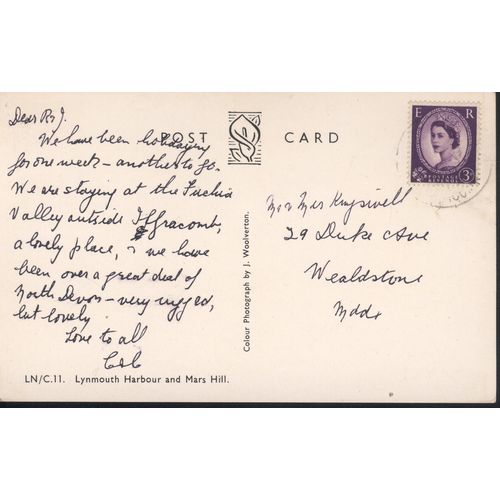 Dear R & J.
We have been holidaying
for one week - another to go.
We are staying at the Fuchia
Valley outside Ilfracomb,
a lovely place, & we have
been over a great deal of
North Devon - very rugged,
but lovely.
Love to all
POST CARD
E R
POSTAGE
REVENUE
3D
Mr & Mrs Kingswell
29 Duke Ave
Wealdstone
Middx
Colour Photograph by J. Woolverton.
LN/C.11. Lynmouth Harbour and Mars Hill.